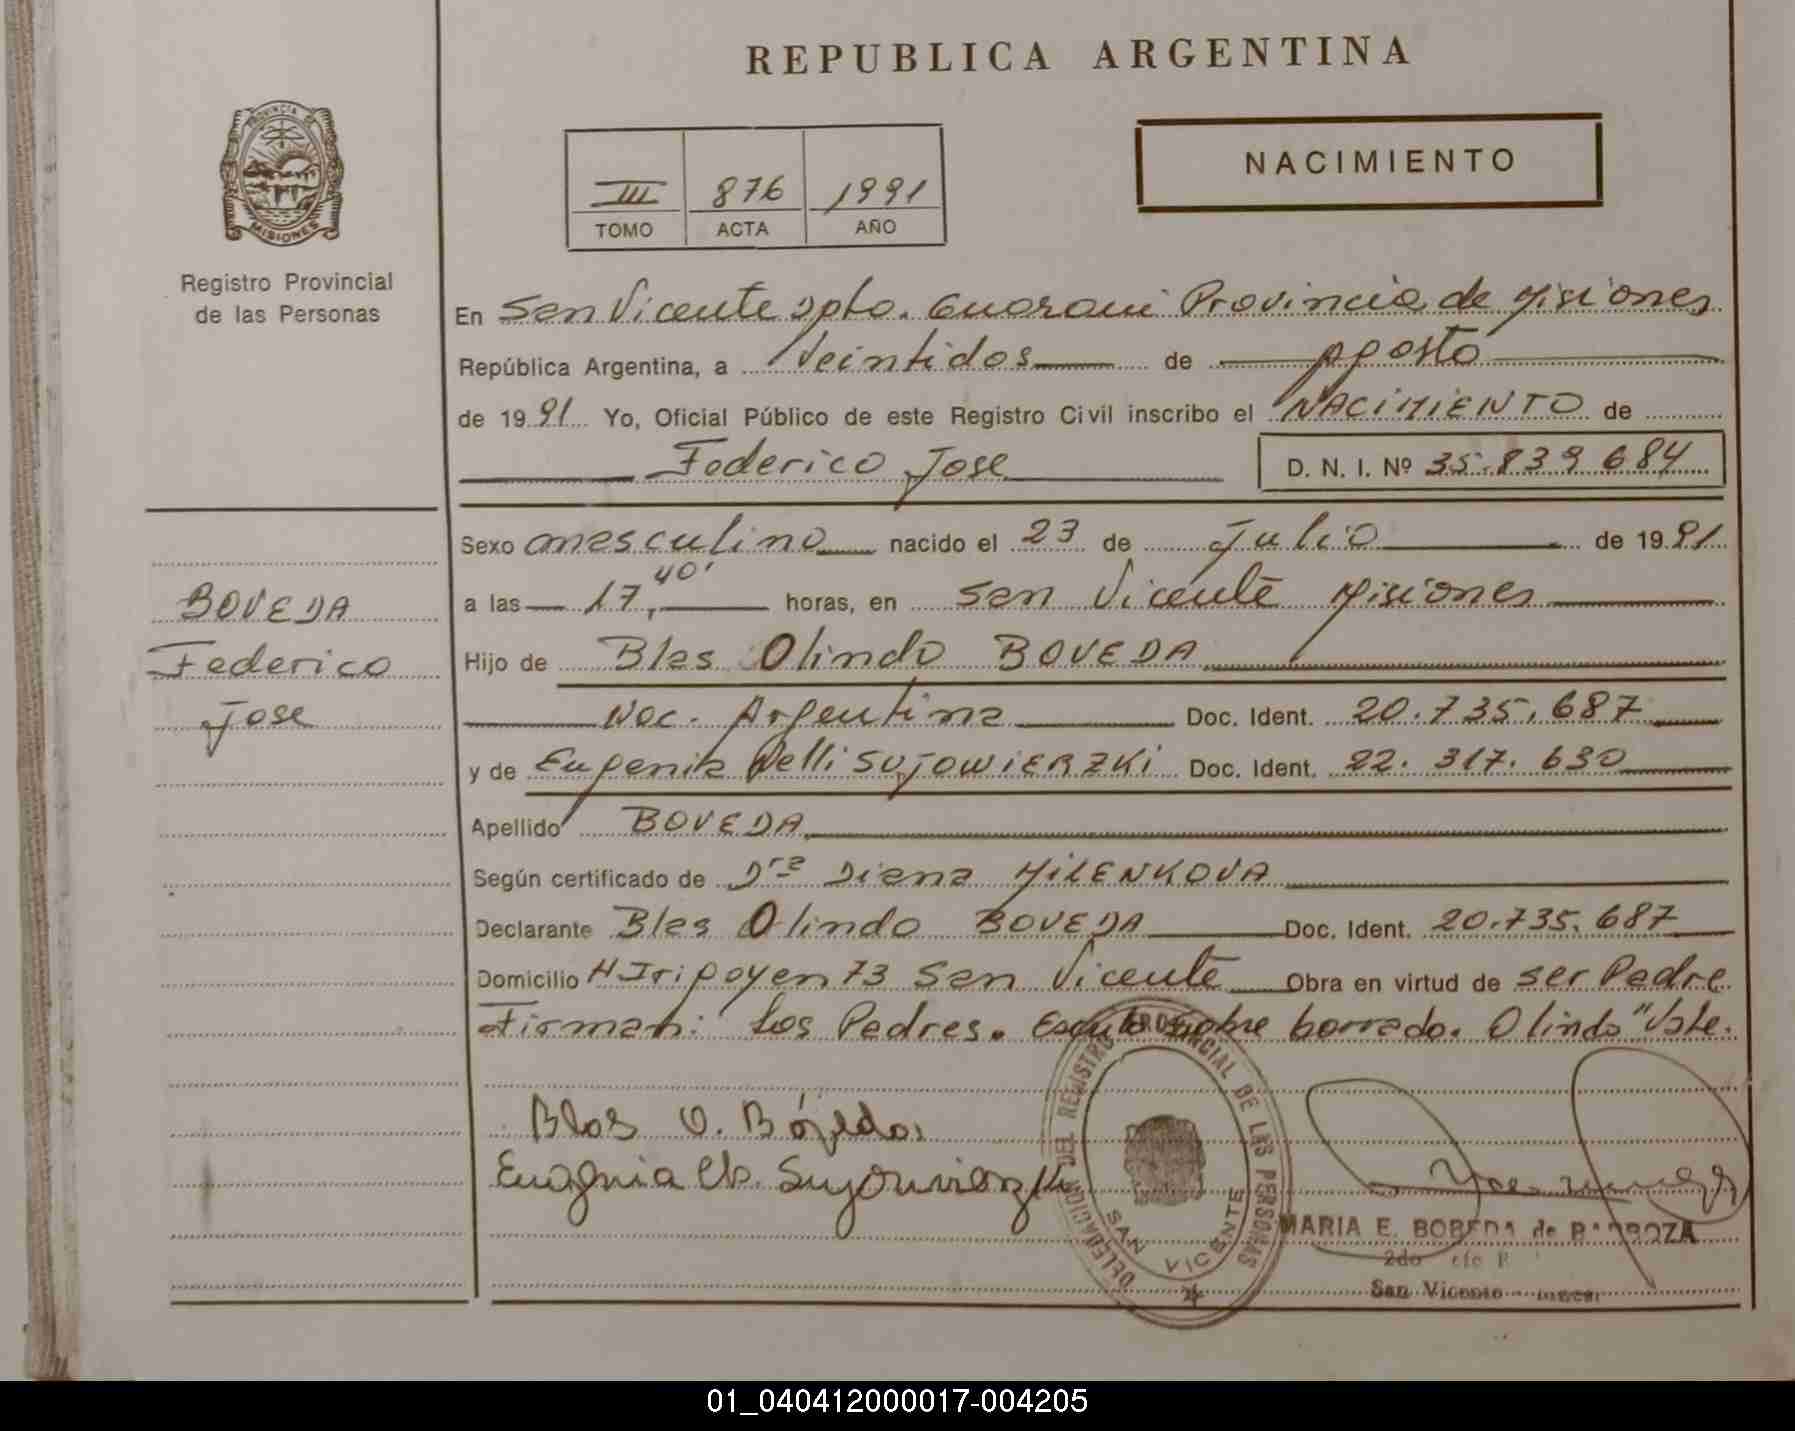 REPUBLICA ARGENTINA
PROVINCIA DE
MISIONES
Registro Provincial
de las Personas
III 876 1991
TOMO ACTA AÑO
NACIMIENTO
En San Vicente Dpto. Guarani Provincia de Misiones
República Argentina, a Veintidos de Agosto
de 1991 Yo, Oficial Público de este Registro Civil inscribo el NACIMIENTO de
Federico Jose D. N. I. Nº 35.839.684
Sexo masculino nacido el 23 de Julio de 1991
a las 17,40' horas, en San Vicente Misiones
Hijo de Blas Olindo BOVEDA
Nac. Argentina Doc. Ident. 20.735.687
y de Eugenia Nelli SUJOWIERZKI Doc. Ident. 22.317.630
Apellido BOVEDA
Según certificado de Dra Diana MILENKOVA
Declarante Blas Olindo BOVEDA Doc. Ident. 20.735.687
Domicilio H Irigoyen 73 San Vicente Obra en virtud de ser Padre
Firman: Los Padres. sobre borrado. Olindo" Vale.
BOVEDA
Federico
Jose
Blas O. Bóveda
Eugenia N. Sujowierzki
DELEGACION DEL REGISTRO PROVINCIAL DE LAS PERSONAS
SAN VICENTE
MARIA E. BOBEDA de BARBOZA
2do
San Vicente
01_040412000017-004205